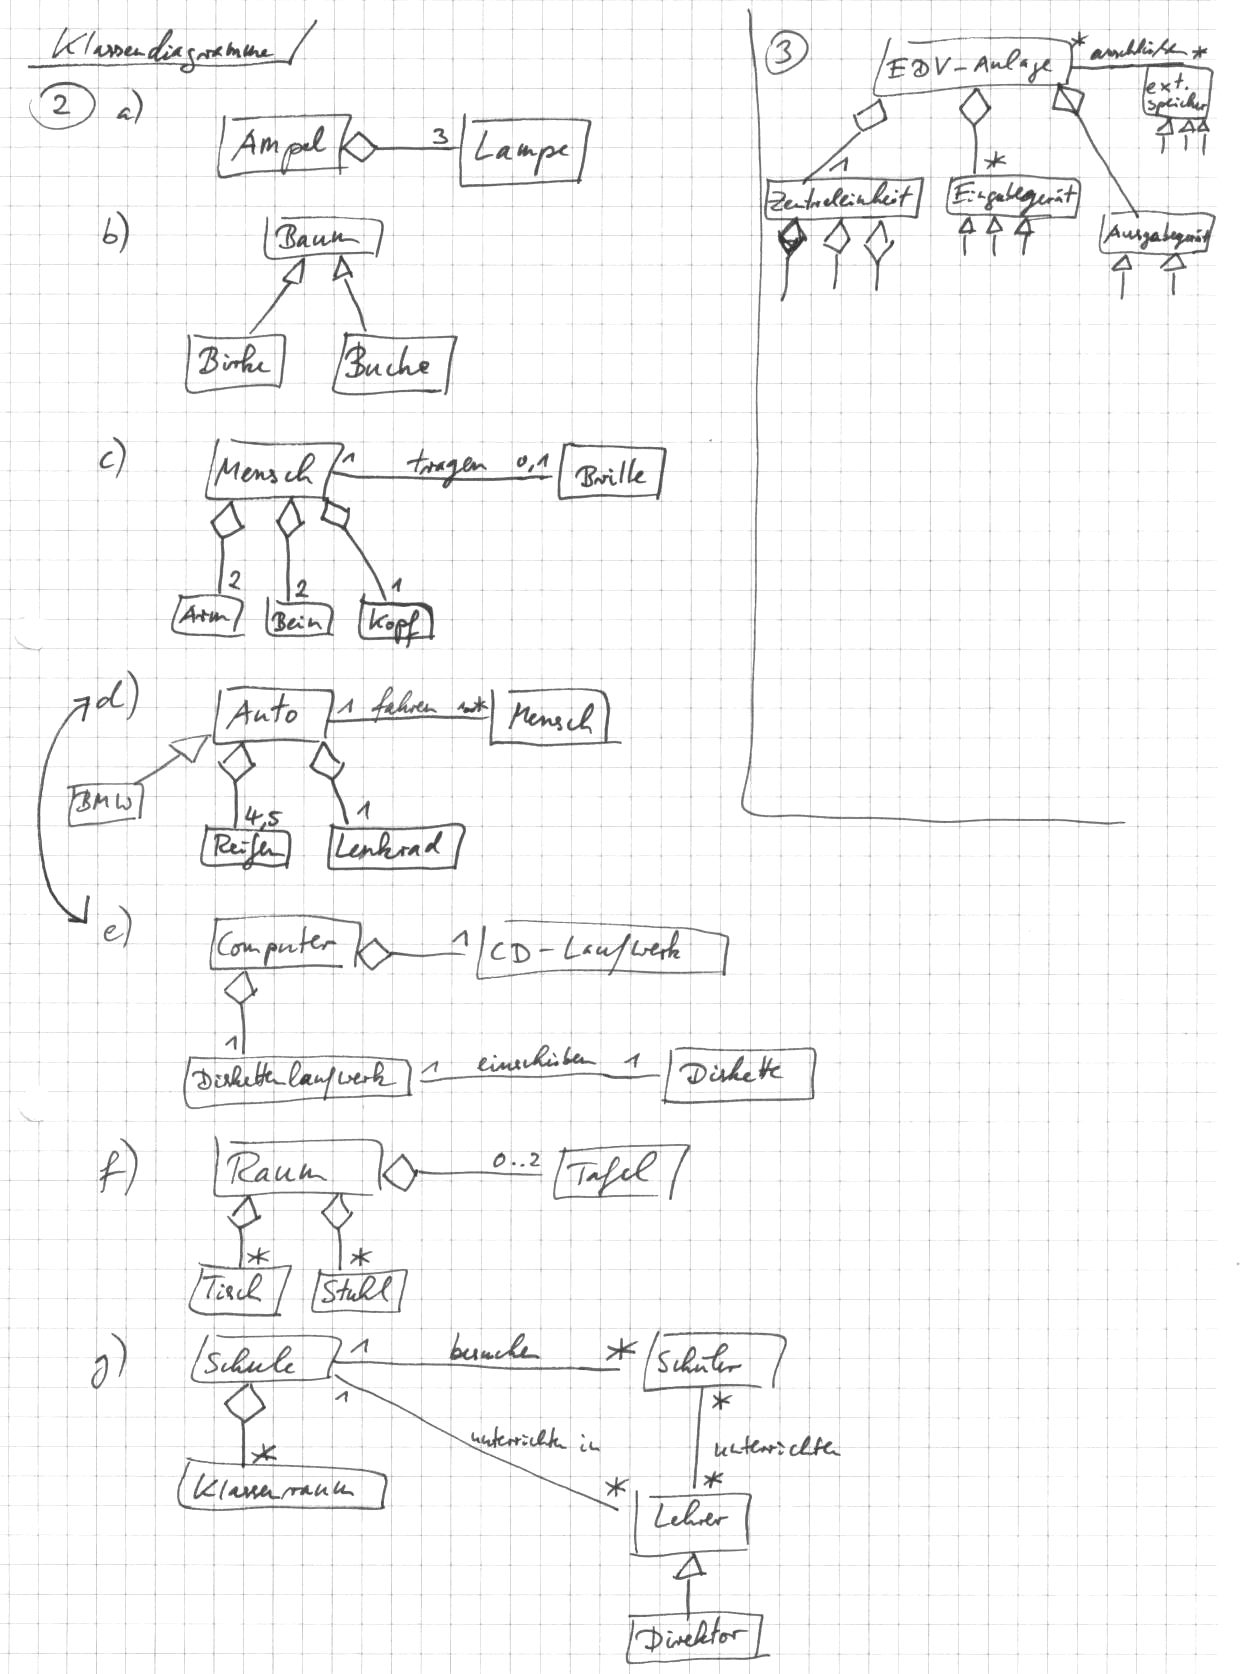 Klassendiagramme
2 a)
Ampel 3 Lampe
b)
Baum
Birke Buche
c)
Mensch 1 tragen 0,1 Brille
2 2 1
Arm Bein Kopf
d)
Auto 1 fahren * Mensch
BMW
4,5 1
Reifen Lenkrad
e)
Computer 1 CD-Laufwerk
1
Diskettenlaufwerk 1 einschieben 1 Diskette
f)
Raum 0..2 Tafel
* *
Tisch Stuhl
g)
Schule 1 besuchen * Schüler
1 *
unterrichten in unterrichten
*
Klassenraum
* *
Lehrer
Direktor
3
EDV-Anlage * anschließen *
ext.
speicher
1 *
Zentraleinheit Eingabegerät
Ausgabegerät